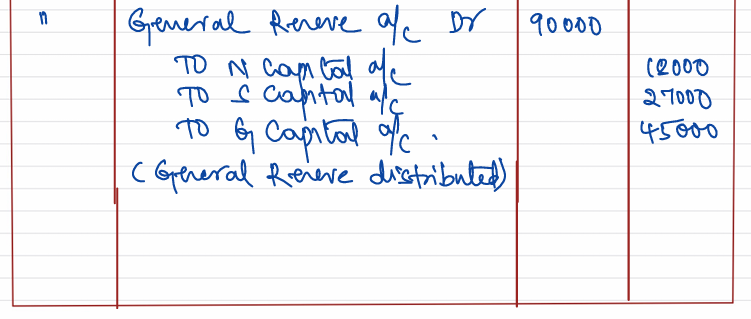 " General Reserve a/c Dr 90000
To N Capital a/c 18000
To S Capital a/c 27000
To G Capital a/c. 45000
(General Reserve distributed)